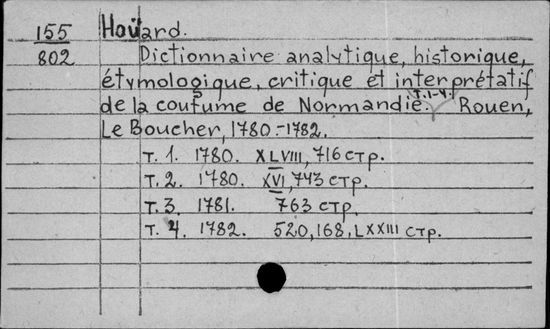 155
802
Hoüard.
Dictionnaire analytique, historique,
étymologique, critique et interprétatif
de la coutume de Normandie. T.1-4. Rouen,
Le Boucher, 1780.-1782.
Т. 1. 1780. XLVIII, 716 стр.
Т. 2. 1780. XVI, 743 стр.
Т. 3. 1781. 763 стр.
Т. 4. 1782. 520, 168, LXXIII стр.